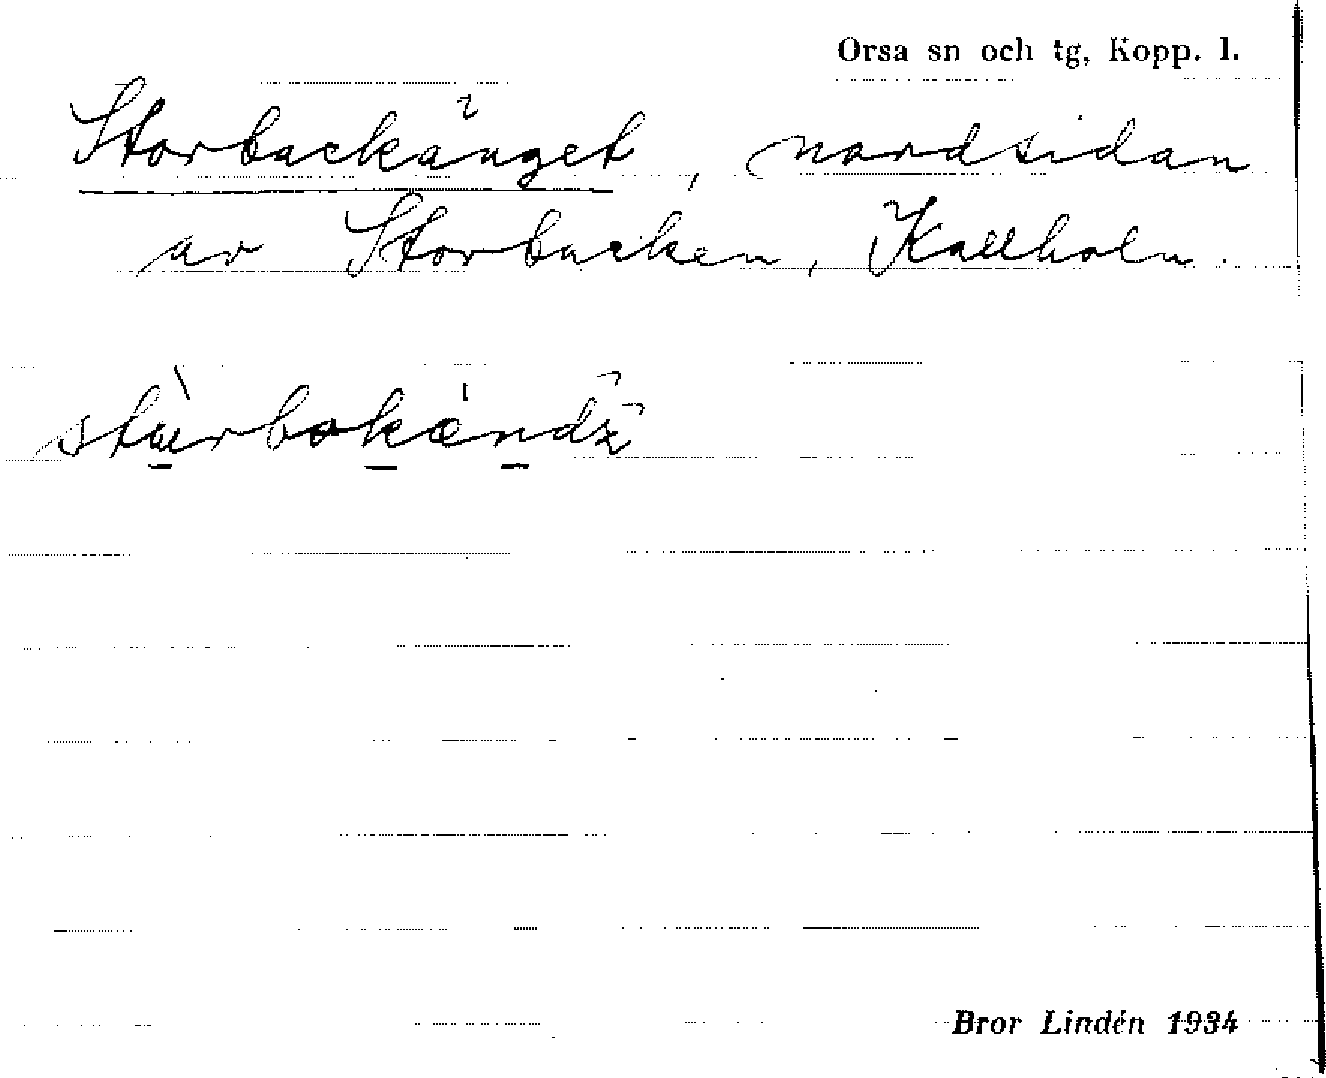 Orsa sn och tg, Kopp. l.
Storbackänget, nordsidan
av Storbacken, Kallholn.
Bror Lindén 1934